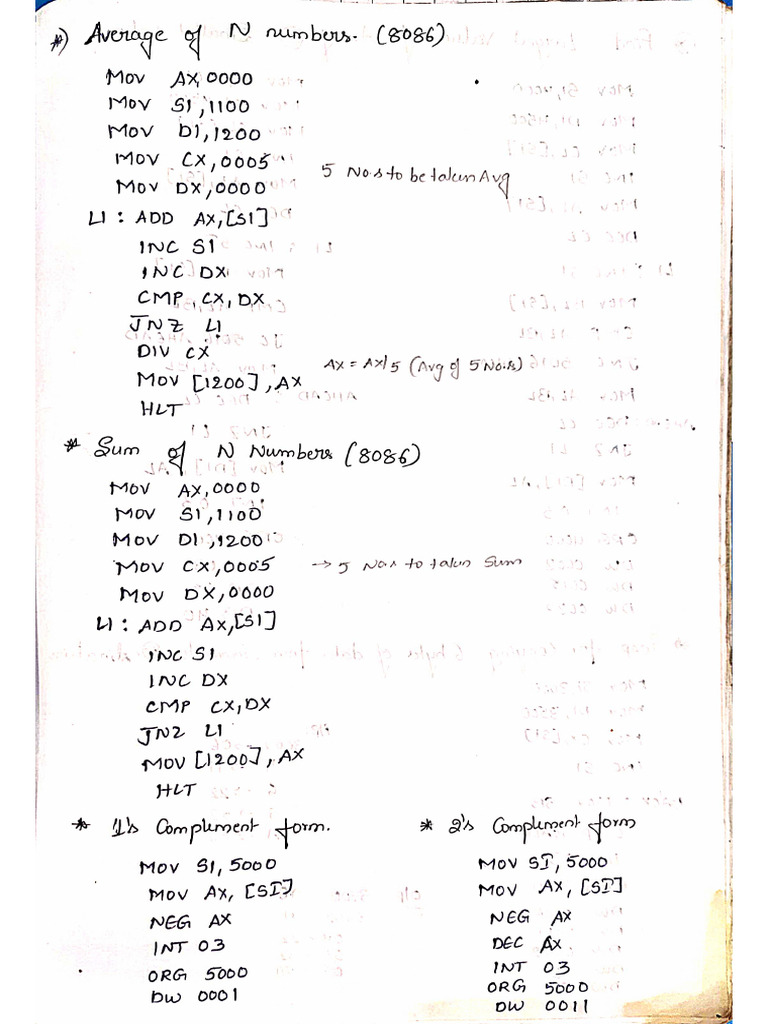 *) Average of N numbers. (8086)
MOV AX,0000
MOV SI,1100
MOV DI,1200
MOV CX,0005
5 No.s to be taken Avg
MOV DX,0000
L1: ADD AX,[SI]
INC SI
INC DX
CMP CX,DX
JNZ L1
DIV CX
AX = AX/5 (Avg of 5 No.s)
MOV [1200],AX
HLT
* Sum of N Numbers (8086)
MOV AX,0000
MOV SI,1100
MOV DI,1200
MOV CX,0005 → 5 No.s to taken Sum
MOV DX,0000
L1: ADD AX,[SI]
INC SI
INC DX
CMP CX,DX
JNZ L1
MOV [1200],AX
HLT
* 1's Complement form.
MOV SI,5000
MOV AX,[SI]
NEG AX
INT 03
ORG 5000
DW 0001
* 2's Complement form
MOV SI,5000
MOV AX,[SI]
NEG AX
DEC AX
INT 03
ORG 5000
DW 0011